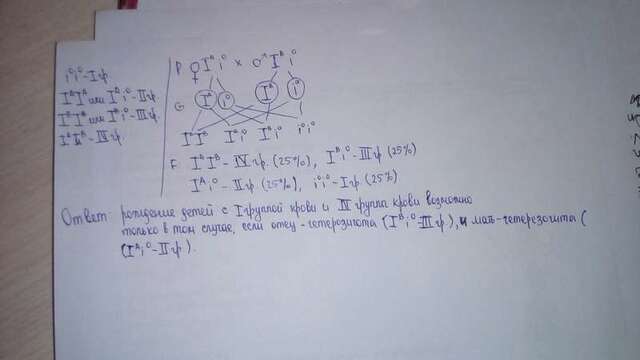 i⁰i⁰ - I гр.
IᴬIᴬ или Iᴬi⁰ - II гр.
IᴮIᴮ или Iᴮi⁰ - III гр.
IᴬIᴮ - IV гр.
P ♀ Iᴬi⁰ × ♂ Iᴮi⁰
G Iᴬ i⁰ Iᴮ i⁰
IᴬIᴮ Iᴬi⁰ Iᴮi⁰ i⁰i⁰
F IᴬIᴮ - IV гр. (25%), Iᴮi⁰ - III гр (25%)
Iᴬi⁰ - II гр. (25%), i⁰i⁰ - I гр (25%)
Ответ: рождение детей с I группой крови и IV группа крови возможно
только в том случае, если отец - гетерозигота (Iᴮi⁰ - III гр.), и мать - гетерозигота (
(Iᴬi⁰ - II гр.).